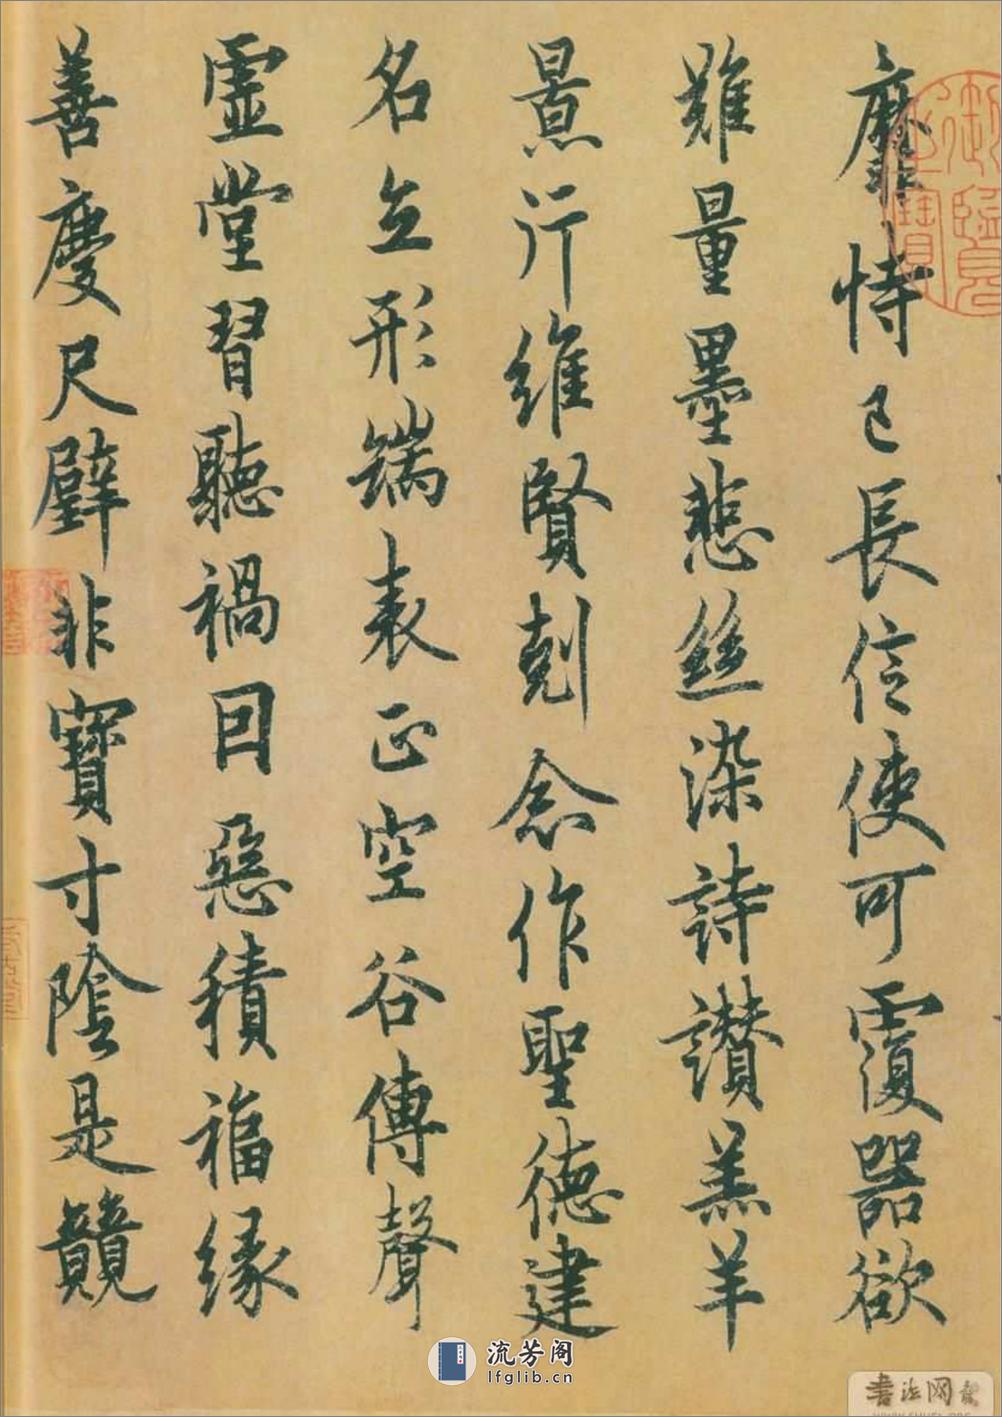 靡恃己長信使可覆器欲
難量墨悲絲染詩讚羔羊
景行維賢剋念作聖德建
名立形端表正空谷傳聲
虛堂習聽禍因惡積福緣
善慶尺璧非寶寸陰是競
流芳阁
lfglib.cn
书法网